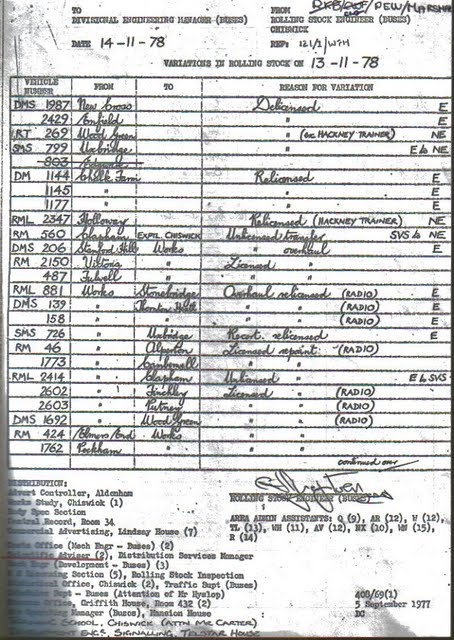 TO FROM
DIVISIONAL ENGINEERING MANAGER (BUSES) ROLLING STOCK ENGINEER (BUSES)
CHISWICK
DATE 14-11-78 REF: 121/1/WFH
VARIATIONS IN ROLLING STOCK ON 13-11-78
VEHICLE NUMBER FROM TO REASON FOR VARIATION
DMS 1987 New Cross Delicensed E
2429 Enfield " E
RT 269 Wood Green " (ex HACKNEY TRAINER) NE
SMS 799 Uxbridge " E to NE
803 Edgware
DM 1144 Chalk Farm Relicensed E
1145 " " E
1177 " " E
RML 2347 Holloway Relicensed (HACKNEY TRAINER) NE
RM 560 Clapham EXPTL CHISWICK Unlicensed transfer SVS to NE
DMS 206 Stamford Hill Works " overhaul E
RM 2150 Victoria " Licensed "
487 Fulwell " " "
RML 881 Works Stonebridge Overhaul relicensed (RADIO) E
DMS 139 " Thornton Heath " " (RADIO) E
158 " " " " (RADIO) E
SMS 726 " Uxbridge Recert. relicensed E
RM 46 " Alperton Licensed repaint (RADIO)
1773 " Camberwell " "
RML 2414 " Clapham Unlicensed " E to SVS
2602 " Finchley Licensed " (RADIO)
2603 " Putney " " (RADIO)
DMS 1692 " Wood Green " " (RADIO)
RM 424 Elmers End Works " "
1762 Peckham " " "
continued over
DISTRIBUTION:
Advert Controller, Aldenham ROLLING STOCK ENGINEER (BUSES)
Works Study, Chiswick (1)
Body Spec Section AREA ADMIN ASSISTANTS: Q (9), AR (12), W (12),
Central Record, Room 34 TL (13), WH (11), AV (12), NX (10), WN (15),
Commercial Advertising, Lindsay House (7) R (14)
Office (Mech Engr - Buses) (2)
Scientific Adviser (2), Distribution Services Manager
Engr (Development - Buses) (3)
Licensing Section (5), Rolling Stock Inspection
Office, Chiswick (2), Traffic Supt (Buses)
Supt - Buses (Attention of Mr Hyslop) 400/69(1)
Office, Griffith House, Room 432 (2) 5 September 1977
Manager (Buses), Mansion House DC
SCHOOL, CHISWICK (ATTN MR CARTER)
ENG. SIGNALLING, TELSTAR HOUSE